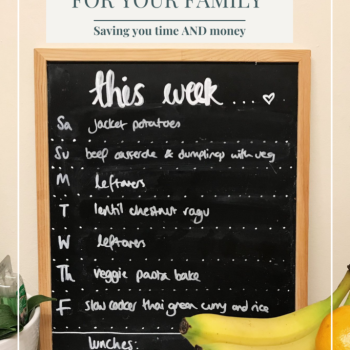 FOR YOUR FAMILY
Saving you time AND money
this week ... ♡
Sa jacket potatoes
Su beef casserole & dumplings with veg
M leftovers
T lentil chestnut ragu
W leftovers
Th veggie pasta bake
F slow cooker thai green curry and rice
lunches: